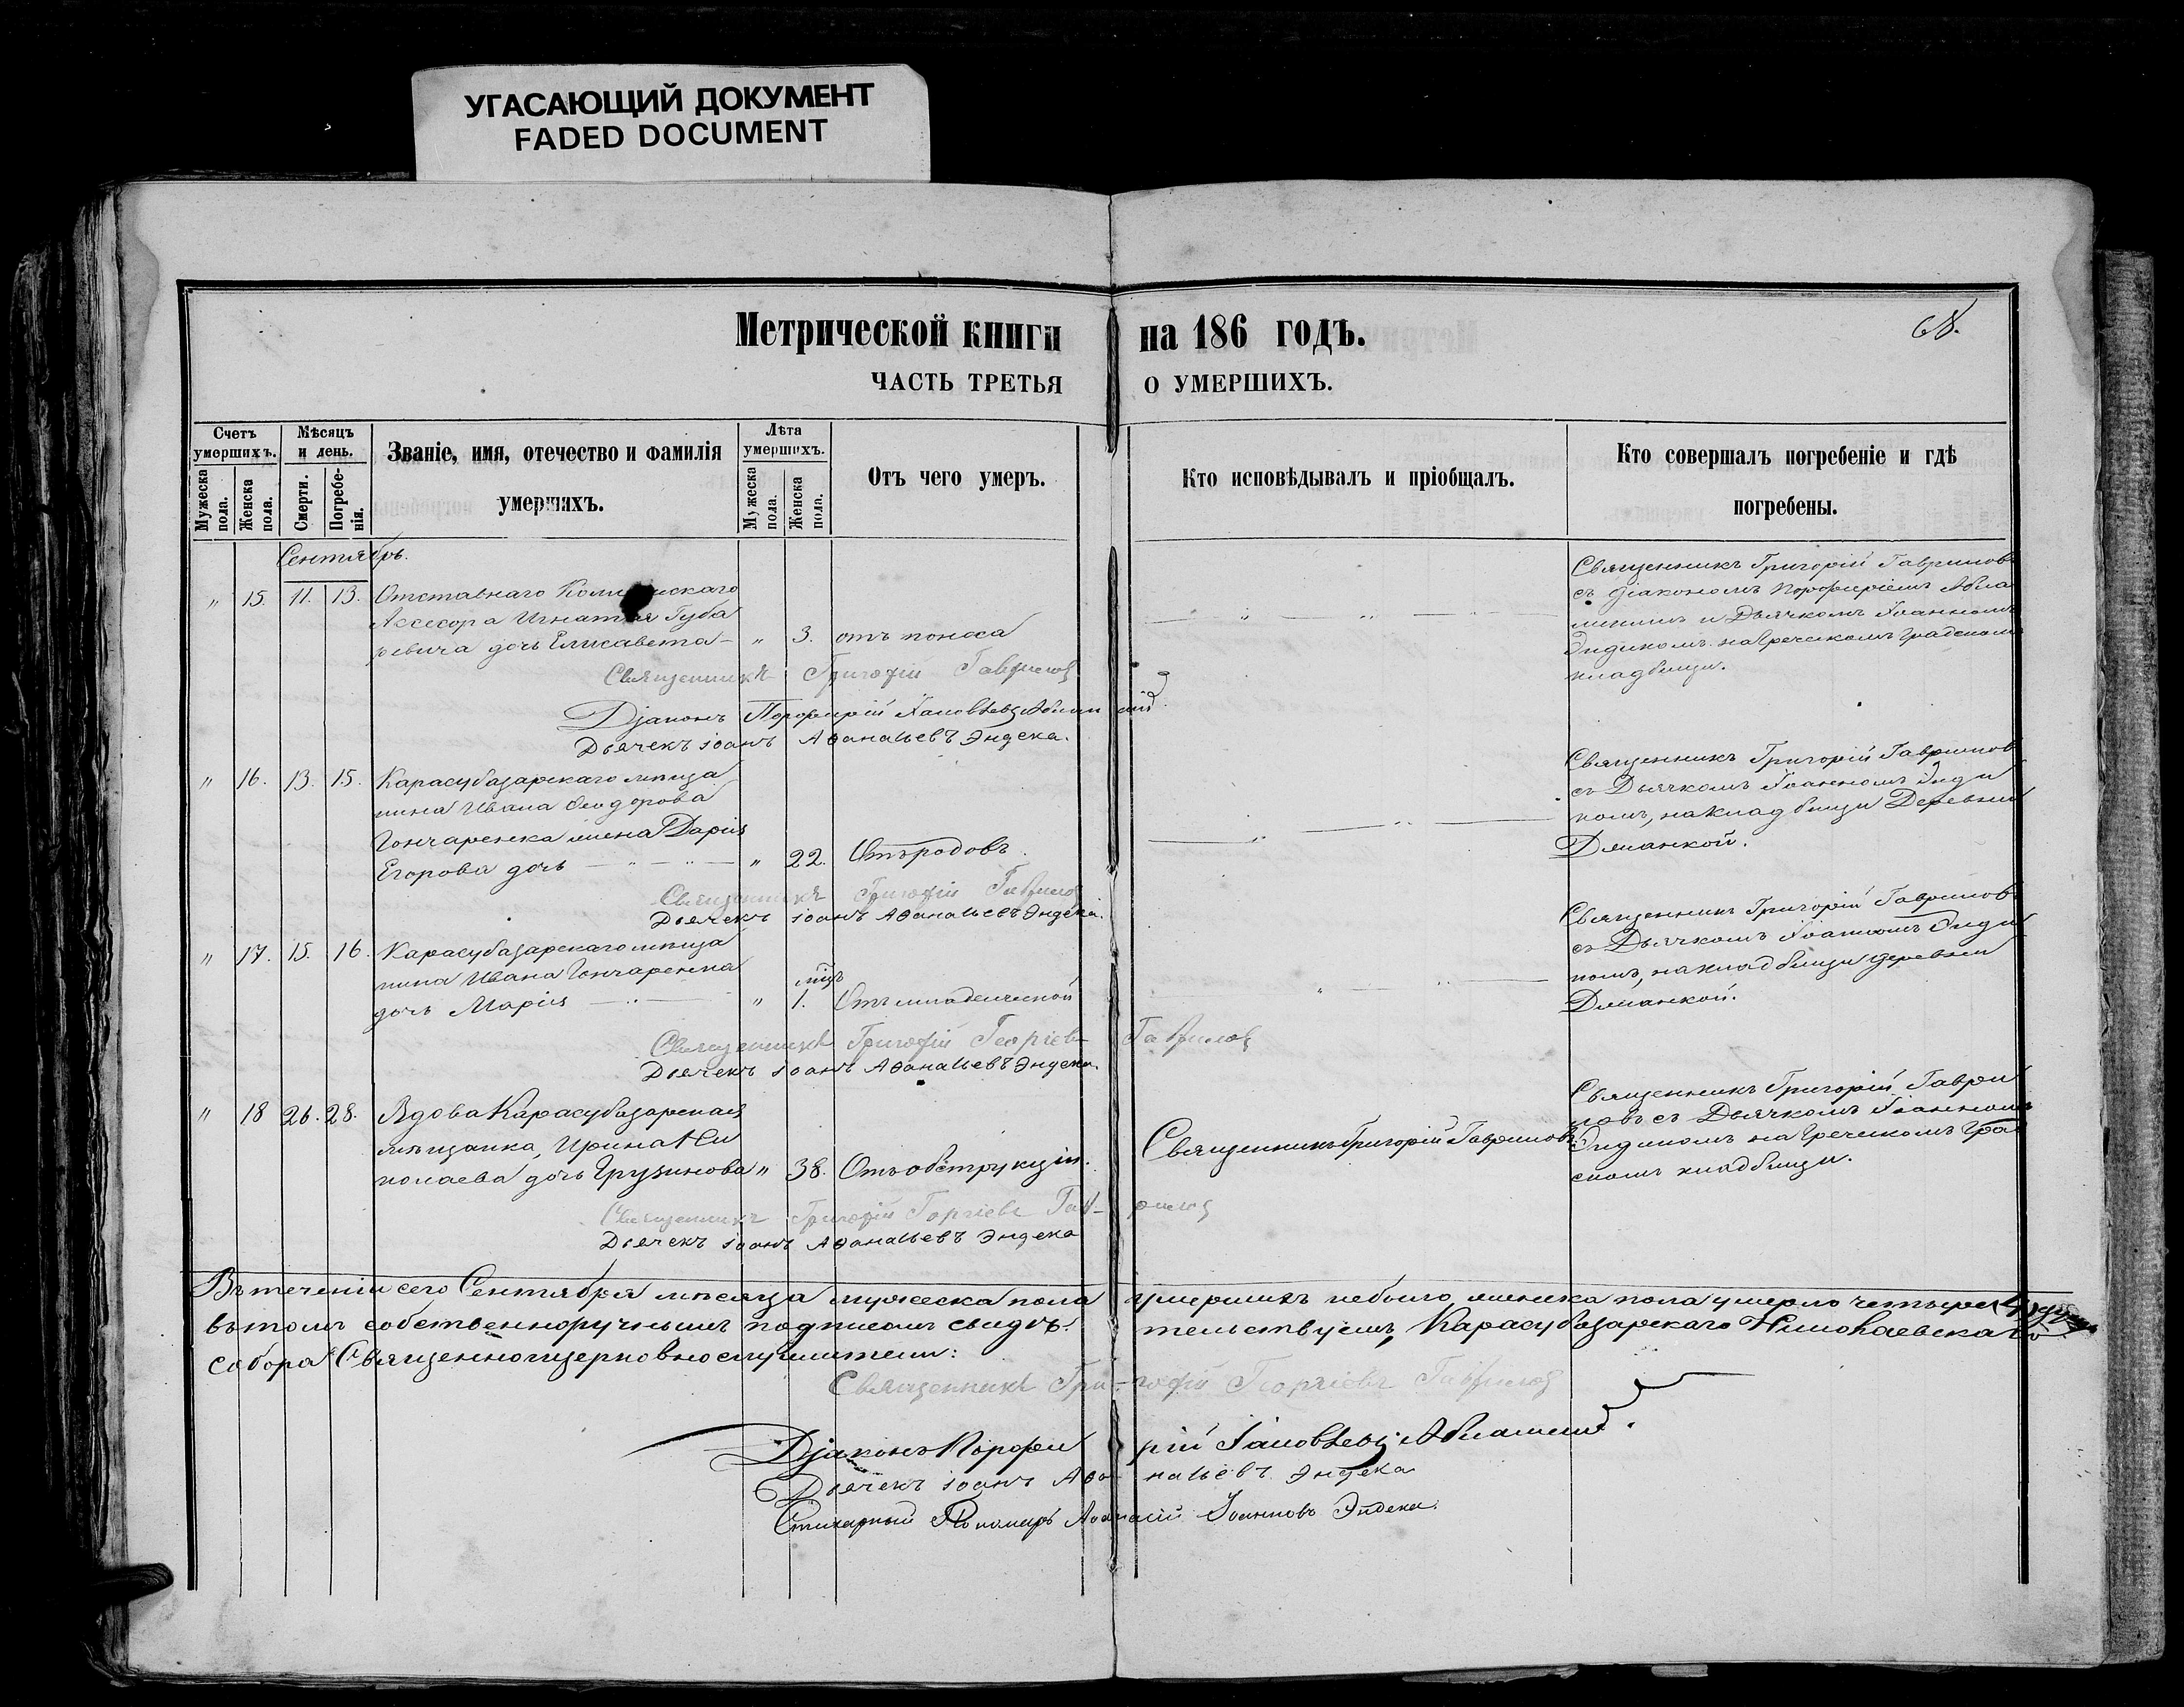 УГАСАЮЩИЙ ДОКУМЕНТ
FADED DOCUMENT
Метрической книги на 186 годъ.
68.
ЧАСТЬ ТРЕТЬЯ О УМЕРШИХЪ.
Счетъ умершихъ.
Мужеска пола.
Женска пола.
Мѣсяцъ и день.
Смерти.
Погребенія.
Званіе, имя, отечество и фамилія
умершихъ.
Лѣта умершихъ.
Мужеска пола.
Женска пола.
Отъ чего умеръ.
Кто исповѣдывалъ и пріобщалъ.
Кто совершалъ погребеніе и гдѣ
погребены.
Сентябрь.
" 15. 11. 13. Отставнаго
Ассесора Игнатія Губа
ревича дочь Елисавета — " 3. отъ поноса
Священникъ Григорій Гавриловъ
съ Діакономъ Порфиріемъ
и Дьячкомъ Іоанномъ
на Греческомъ градскомъ
кладбищи.
Священникъ Григорій Гавриловъ
Діаконъ Порфирій Іаковлевъ
Дьячекъ Іоанъ Аѳанасьевъ Эндека.
" 16. 13. 15. Карасубазарскаго мѣща
нина Ивана Ѳеодорова
Гончаренка жена Дарія
Егорова дочь — " 22. Отъ родовъ.
Священникъ Григорій Гавриловъ
съ Дьячкомъ Іоанномъ Энди
комъ, на кладбищи Деревни
Священникъ Григорій Гавриловъ
Дьячекъ Іоанъ Аѳанасьевъ Эндека.
" 17. 15. 16. Карасубазарскаго мѣща
нина Ивана Гончаренка
дочь Марія — " 1. мѣц. Отъ младенческой
Священникъ Григорій Гавриловъ
съ Дьячкомъ Іоанномъ Энди
комъ, на кладбищи деревни
Священникъ Григорій Георгіевъ Гавриловъ
Дьячекъ Іоанъ Аѳанасьевъ Эндека.
" 18 26. 28. Вдова Карасубазарская
мѣщанка, Ирина Ни
колаева дочь Грузинова " 38. Отъ обструкціи.
Священникъ Григорій Гавриловъ
Священникъ Григорій Гаври
ловъ съ Дьячкомъ Іоанномъ
Эндикомъ на Греческомъ Град
скомъ кладбищи.
Священникъ Григорій Георгіевъ Гавриловъ
Дьячекъ Іоанъ Аѳанасьевъ Эндека
Въ теченіи сего Сентября мѣсяца мужеска пола умершихъ небыло, женска пола умерло четыре
въ томъ собственноручнымъ подписомъ свидѣтельствуемъ, Карасубазарскаго Николаевскаго
собора Священноицерковнослужители:
Священникъ Григорій Георгіевъ Гавриловъ
Діаконъ Порфирій Іаковлевъ
Дьячекъ Іоанъ Аѳанасьевъ Эндека
Стихарный Пономарь Аѳанасій Іоанновъ Эндека.